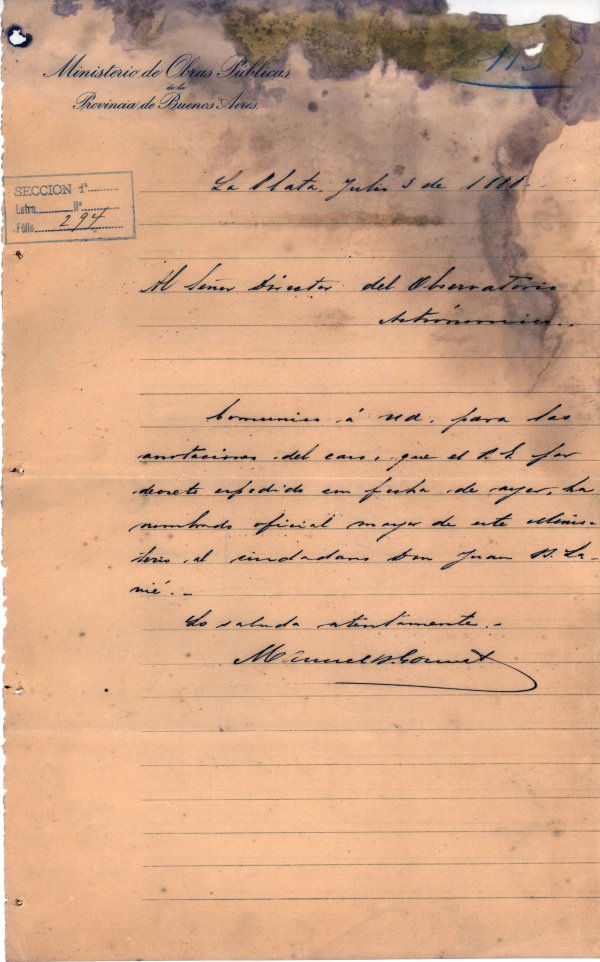 Ministerio de Obras Públicas
de la
Provincia de Buenos Aires.
113
SECCION 1ª
Letra Nº
Fólio 294
La Plata, Julio 3 de 188
Al Señor Director del Observatorio
Astrónomico..
Comunico á ud. para las
anotaciones del caso, que el P. E. por
decreto espedido con fecha de ayer, ha
nombrado oficial mayor de este Minis-
terio al ciudadano Don Juan B. La-
vié.-
Lo saluda atentamente.-
Manuel B. Gonnet